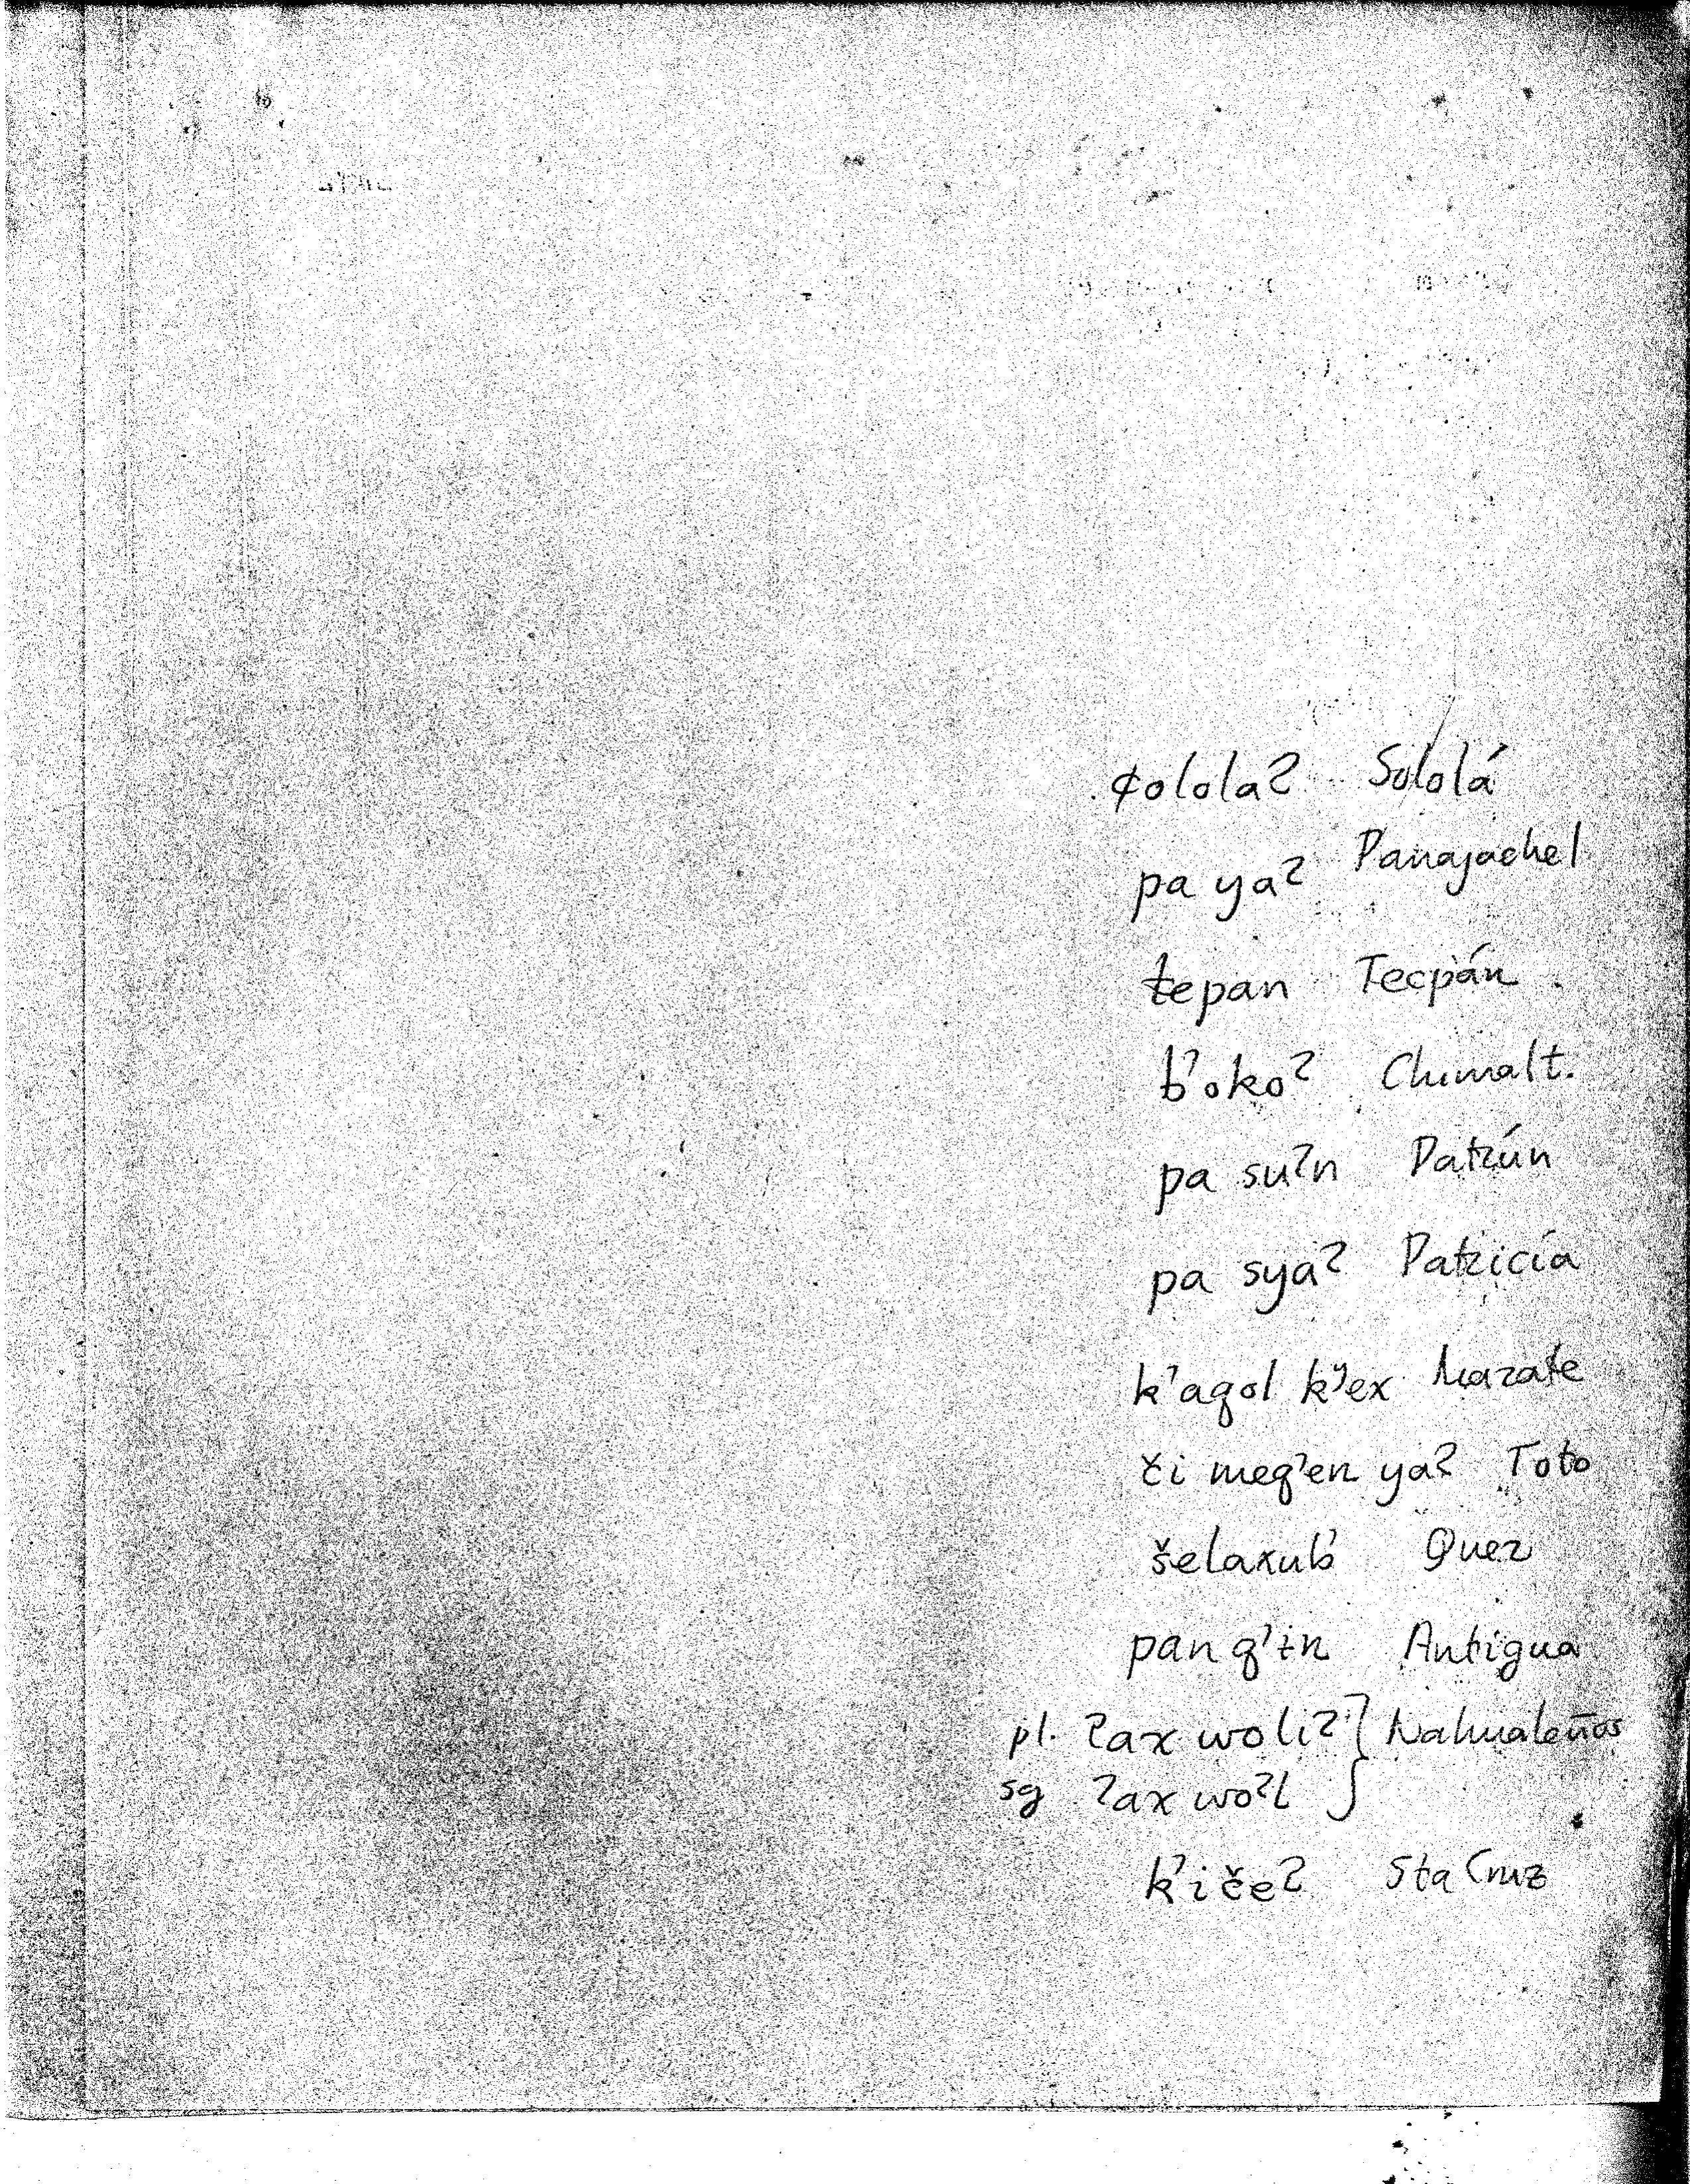 ¢olola? Sololá
pa ya? Panajachel
tepan Tecpán
b'oko? Chimalt.
pa su?n Patzún
pa sya? Patzicía
k'aqol kʸ'ex Mazate
či meq'en ya? Toto
šelaxub' Quez
pan q'ɨn Antigua
pl. ?ax woli? } Nahualeños
sg ?ax wo?l
k'iče? Sta Cruz